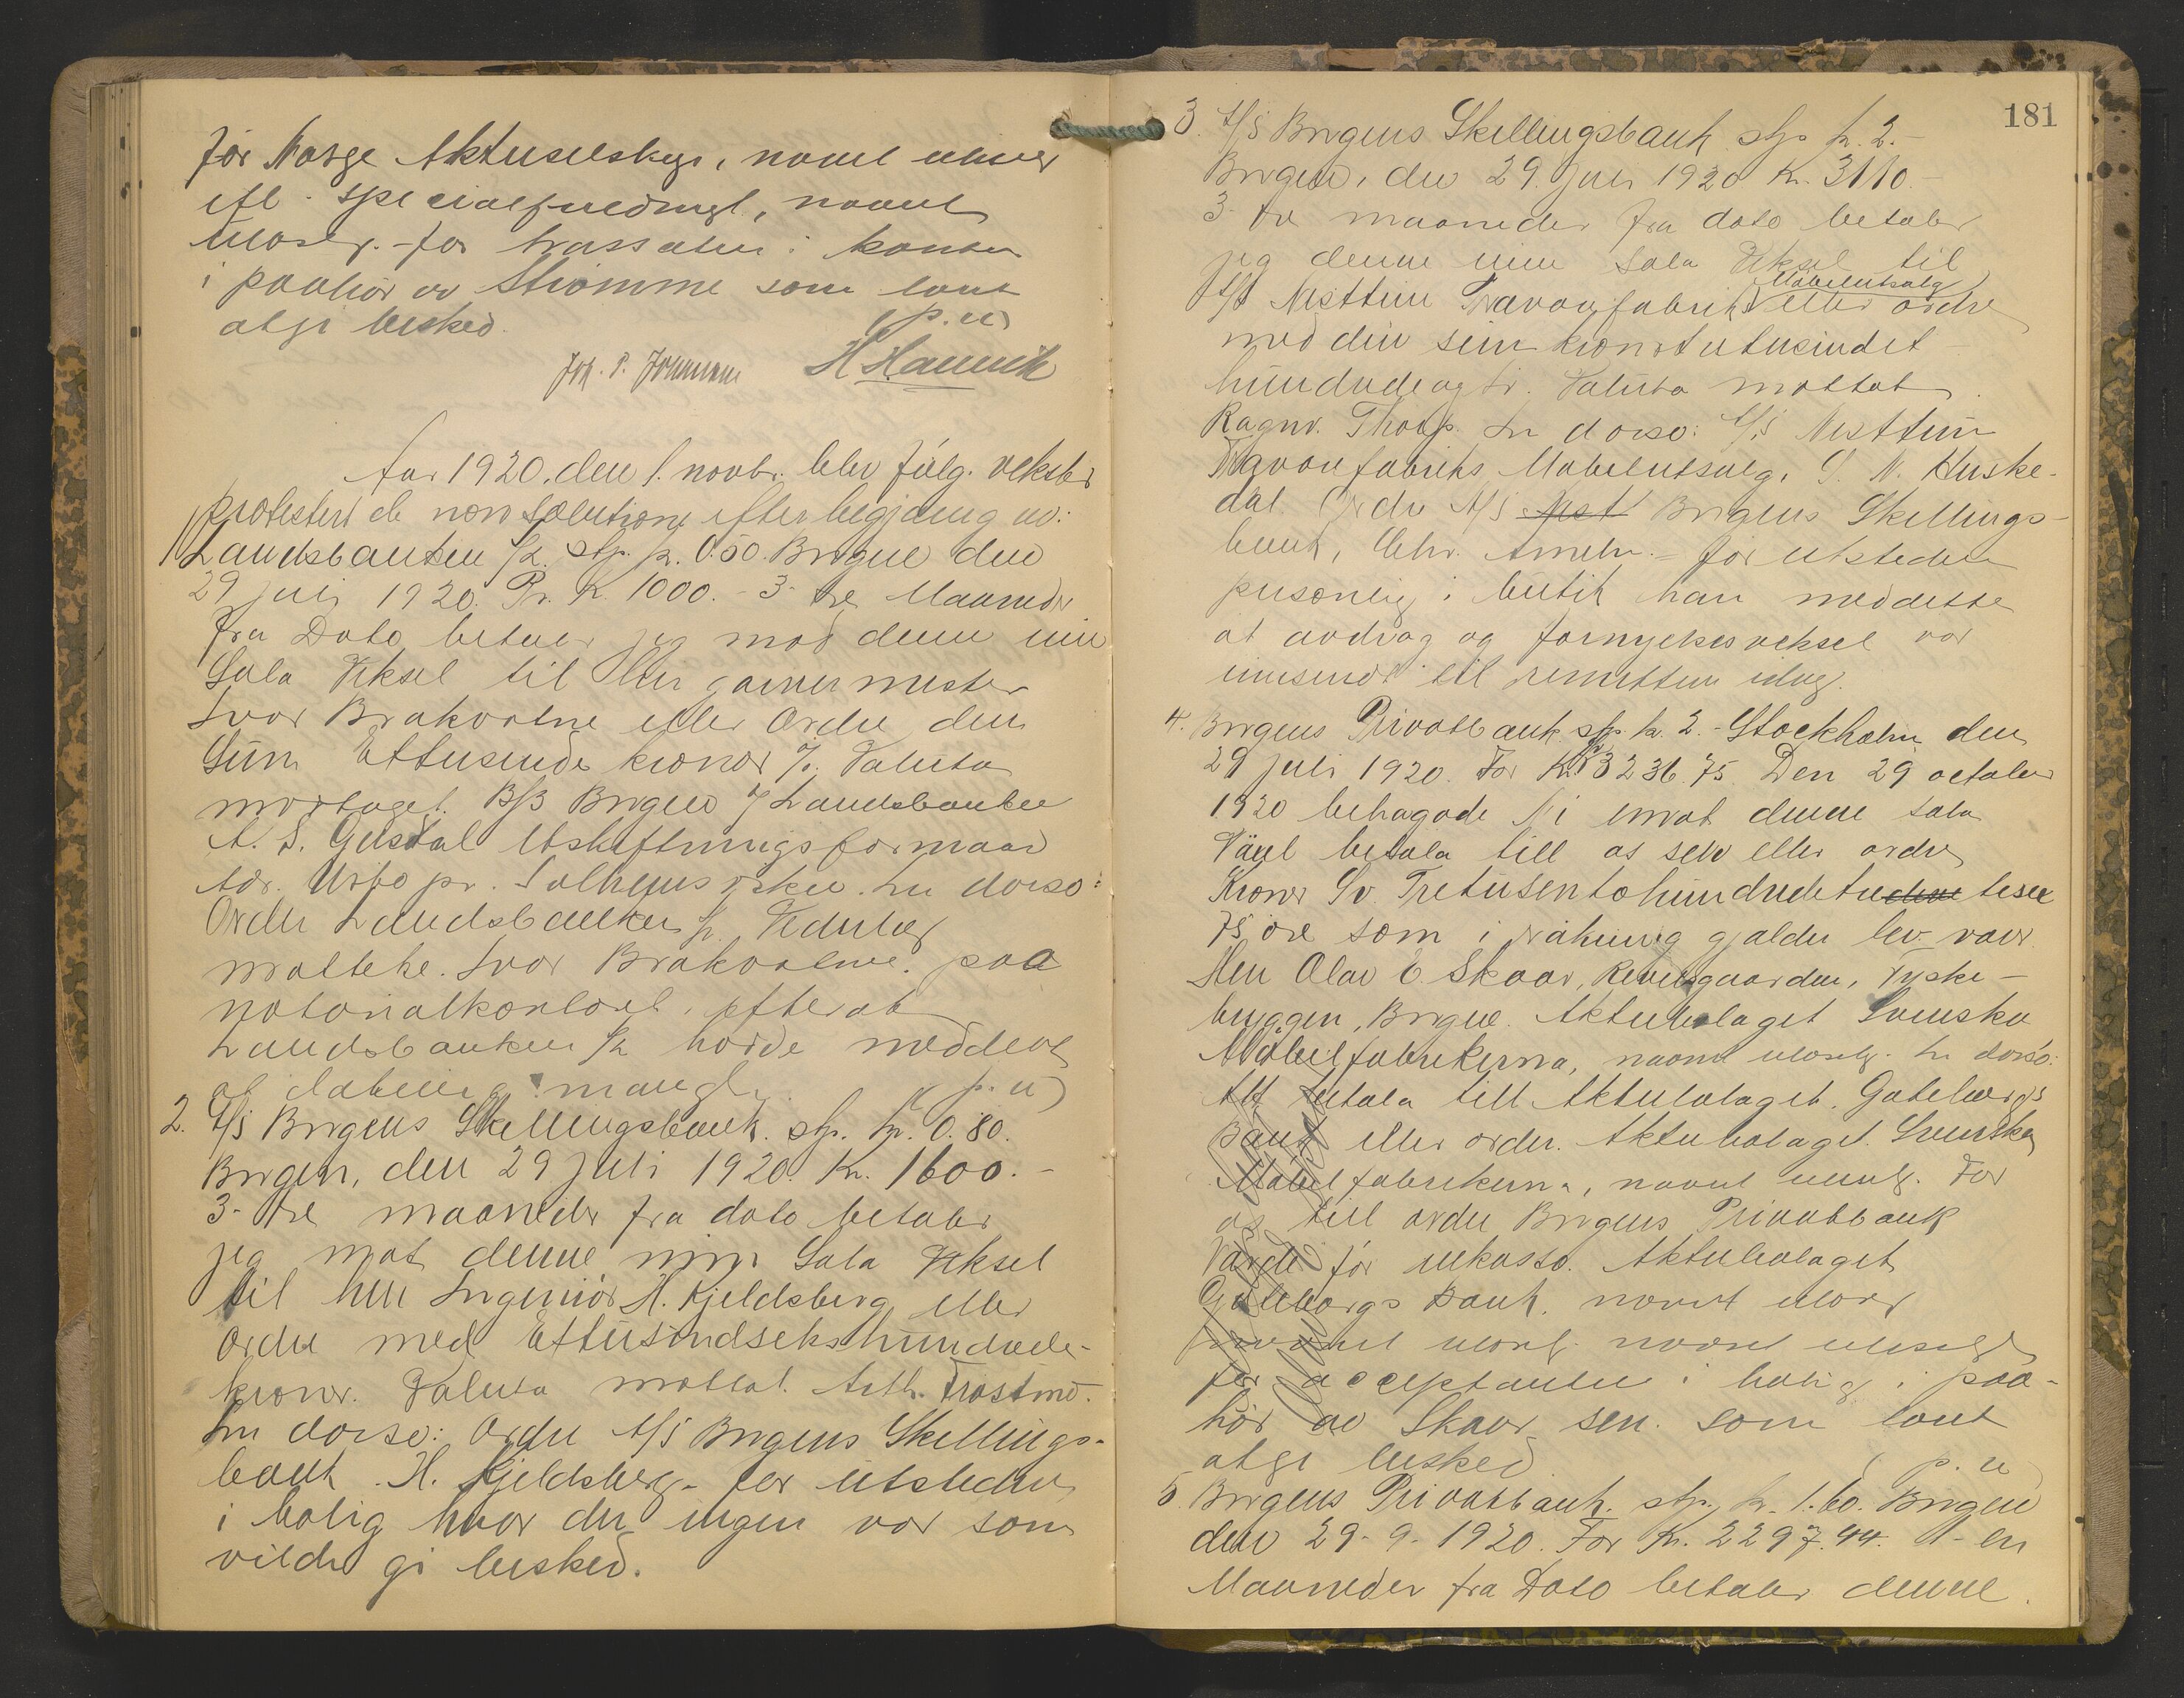 for Norge Aktieselskap, navnet ulæser
efl. specialfuldmagt, navnet
ulæselig. - for trassaten i kontor
i paahør av Strømme som lovet
at gi besked. (p. u)
Joh. P. Johannesen H Hannik
Aar 1920, den 1. novbr. blev følg. veksler
protestert de non solutione efter begjæring av:
1 Landsbanken A/S. stp. kr. 0.50. Bergen den
29 juli 1920. Pr. K. 1000. - 3- tre Maaneder
fra Dato betaler jeg mod denne min
Sola Veksel til Herr garvermester
Ivar Brakvatne eller Ordre den
Sum Ettusinde kroner %. Valuta
mottaget. B/B Bergen % Landsbanken
A. S. Gustal Utskiftningsformand
Adr. Urbø pr. Solheimsviken. In dorso:
Ordre Landsbanken A/S. Vederlag
mottatt. Ivar Brakvatne. paa
notarialkontoret, efter at
Landsbanken A/S hadde meddelt
at dækning mangler. (p. u)
2. A/S Bergens Skillingsbank. stp. kr. 0.80.
Bergen, den 29 juli 1920. Kr. 1600.-
3- tre maaneder fra dato betaler
jeg mot denne min Sola Veksel
til herr Ingeniør H. Kjeldsberg eller
ordre med Ettusindsekshundrede-
kroner. Valuta mottat. Arth. Frostmo.
In dorso: Ordre A/S Bergens Skillings-
bank. H. Kjeldsberg - for utstederen
i bolig hvor der ingen var som
vilde gi besked.
181
3. A/S Bergens Skillingsbank stp. kr. 2.-
Bergen, den 29. juli 1920 Kr. 3110.-
3- tre maaneder fra dato betaler
jeg denne min Sola Veksel til
Møbelutsalg
A/S Nesttun Trævarefabriks eller ordre
med den sum kronertretusindet
hundredeogti. Valuta mottat.
Ragnv. Thorp. In dorso: A/S Nesttun
Trævarefabriks Møbelutsalg. S. N. Huske-
dal. Ordre A/S Nest Bergens Skillings-
bank, Chr. Ameln. - for utstederen
personlig i butik han meddelte
at avdrag og fornyelsesveksel var
innsendt til remittenten idag.
4. Bergens Privatbank stp. kr. 2. - Stockholm den
29 juli 1920. For Kr. 3236.75 Den 29 october
1920 behagade Ni emot denna sola
Växel betala till oss selv eller ordre
Kronor Sv. Tretusentohundradetretisex
75 öre som i räkning gjalder lev. varer
Herr Olav O. Skaar, Revelsgaarden, Tyske-
bryggen, Bergen. Aktiebolaget Svenska
Möbelfabrikerna, navnet ulæselig. In dorso:
Att betala till Aktiebolaget Göteborgs
Bank eller order. Aktiebolaget Svenska
Möbelfabrikerna, navnet ulæselig. For
os till ordre Bergens Privatbank
Värde för inkasso. Aktiebolaget
Göteborgs Bank. navnet ulæser
navnet ulæselig. navnet ulæselig
for acceptanten i bolig i paa-
hør av Skaar sen. som lovet
at gi besked (p. u)
5. Bergens Privatbank. stp. kr. 1.60. Bergen
den 29-9-1920. For Kr. 2297.44. 1- en
Maaneder fra Dato betaler denne